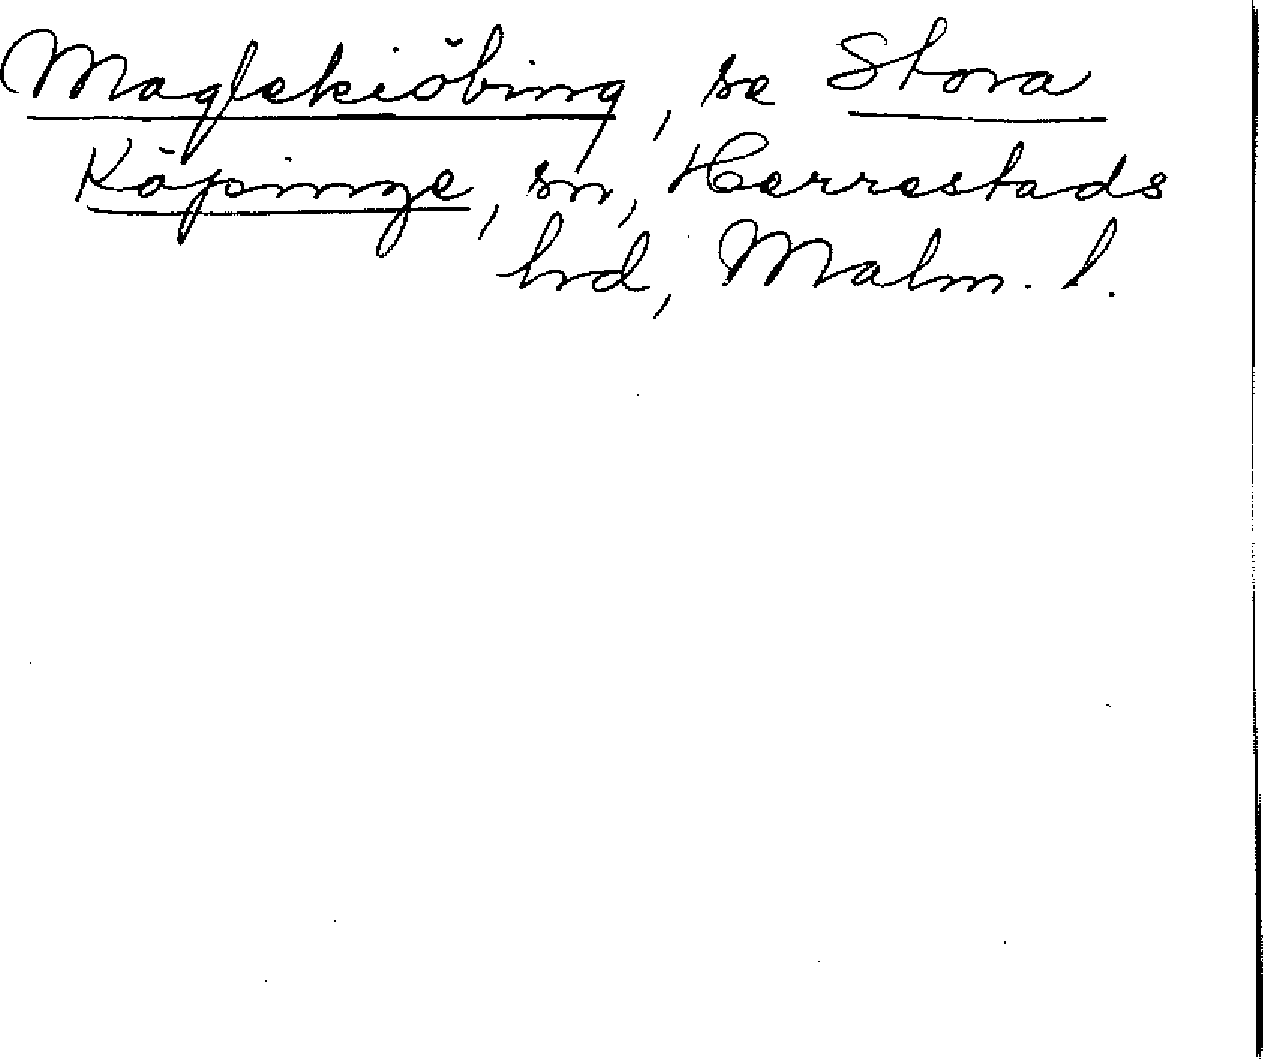 Maglekiöbing, se Stora
Köpinge, sn, Herrestads
hrd, Malm. l.